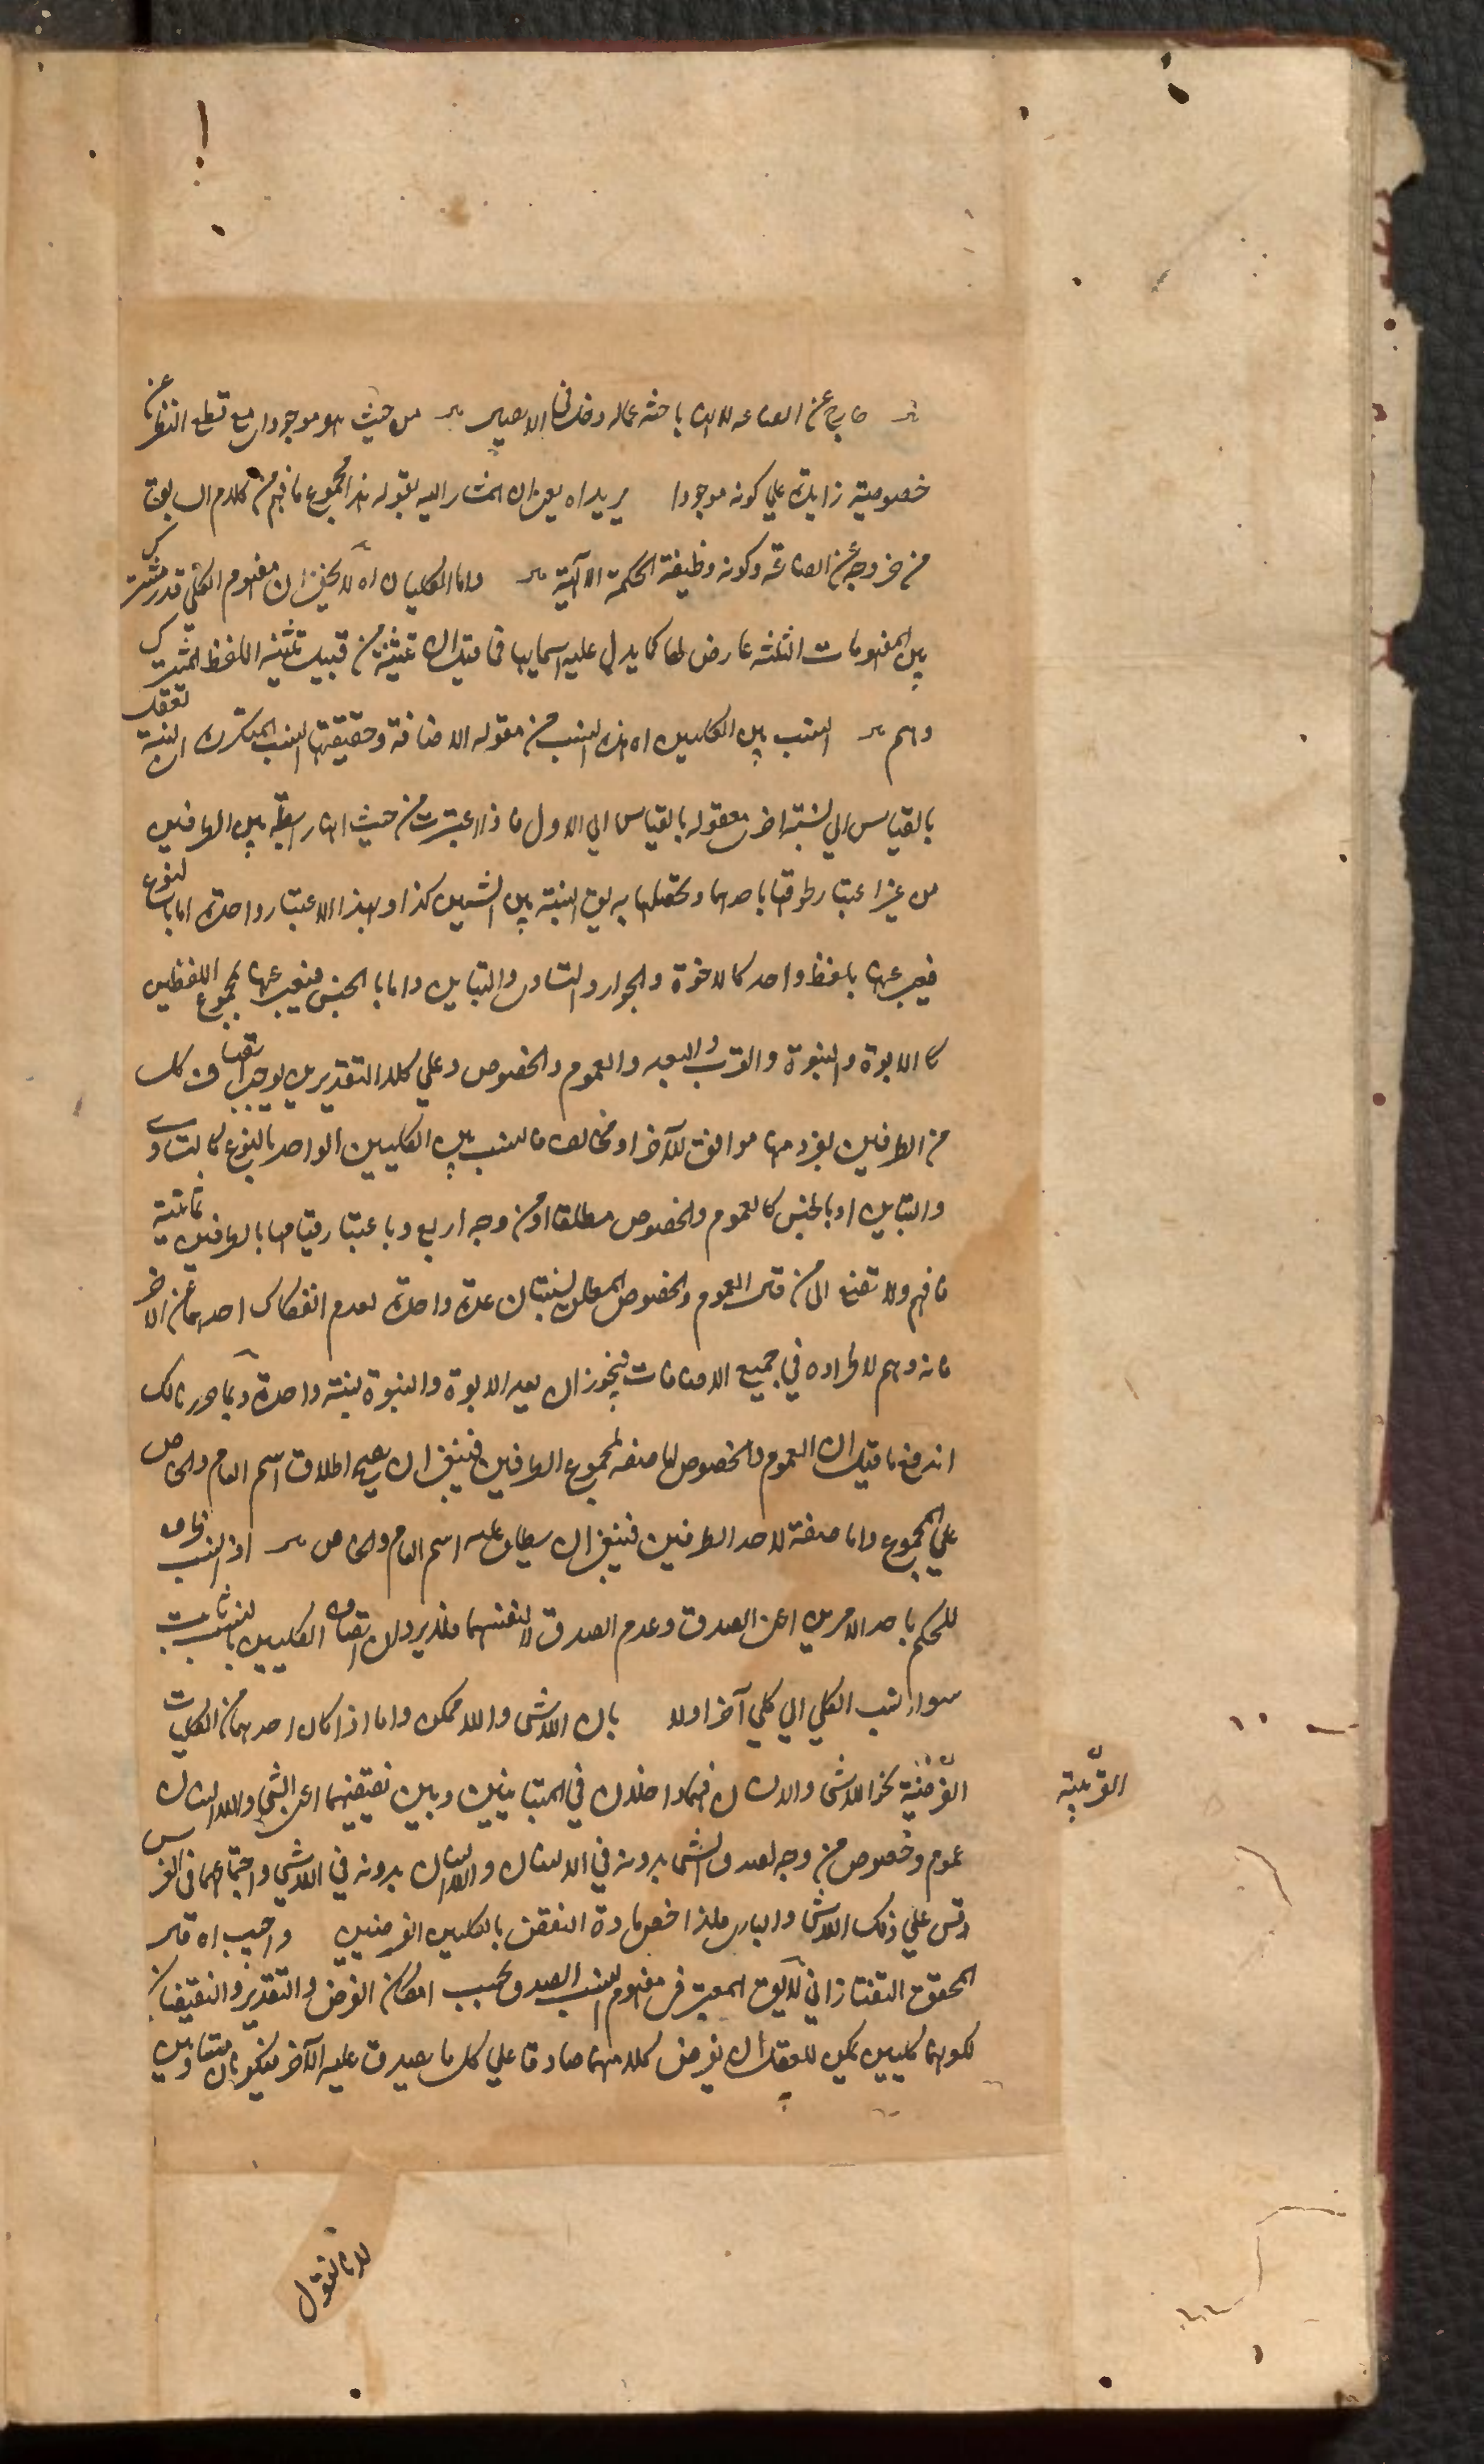 خارج عن الصناعة لانها باحثة عما له دخل في الايصال من حيث هو موجود اى مع قطع النظر عن
خصوصية زايدة علي كونه موجودا يريد اه يعني ان المشار اليه بقوله هذا مجموع ما فهم من كلام السابق
من خروجه عن الصناعة وكونه وظيفة الحكمة الالهية واما الكليان اه لا يخفى ان مفهوم الكلي قدر مشترك
بين المفهومات الثلثة عارض لها كما يدل عليه اسمايها فما قيل ان تثنيته من قبيل تثنية اللفظ المشترك
وهم النسب بين الكليين اه هذه النسب من مقولة الاضافة وحقيقتها النسب المتكررة اى النسبة تعقل
بالقياس الي نسبة اخرى معقولة بالقياس الي الاول فاذا اعتبرت من حيث انها رابطة بين الطرفين
من غير اعتبار طروقها باحدهما وتعقلها به يق النسبة بين الشيئين كذا وبهذا الاعتبار واحدة اما بالنوع
فيعبر عنها بلفظ واحد كالاخوة والجوار والتساوى والتباين واما بالجنس فيعبر عنها بمجموع اللفظين
كالابوة والبنوة والقرب والبعد والعموم والخصوص وعلي كلا التقديرين يوجب اتصاف كل
من الطرفين بفرد منها موافق للآخر او مخالف فالنسب بين الكليين الواحد بالنوع كالتساوى
والتباين او بالجنس كالعموم والخصوص مطلقا او من وجه اربع وباعتبار قيامها بالطرفين ثمانية
فافهم ولا تصغ الى من قال العموم والخصوص المطلق نسبتان عدتا واحدة لعدم انفكاك احدهما عن الآخر
فانه وهم لاطراده في جميع الاضافات فيجوز ان يعد الابوة والبنوة نسبة واحدة وبما حررنا لك
اندفع ما قيل ان العموم والخصوص اما صفة لمجموع الطرفين فينبغى ان يصح اطلاق اسم العام والخاص
علي المجموع واما صفة لاحد الطرفين فينبغى ان يطلق عليه اسم العام والخاص اذ النسب
للحكم باحد الامرين اعنى الصدق وعدم الصدق لا لنفسهما اتصاف الكليين بالنسب ثابت
سواء نسب الكلي الي كلي آخر اولا بان اللاشى واللا ممكن واما اذا كان احدهما من الكليات
الفرضية نحو اللاشى والانسان فهما داخلان في المتباينين وبين نقيضيهما اعنى الشي واللاانسان
عموم وخصوص من وجه لصدق الشى بدونه في الانسان واللاانسان بدونه في اللاشى واجتماعهما في الفرس
وقس علي ذلك اللاشى والبارى فلذا خص مادة النقض بالكليين الفرضيين واجيب اه قال
المحقق التفتازاني لا يق المعتبر في مفهوم النسب الصدق بحسب امكان الفرض والتقدير والنقيضان
لكونهما كليين يمكن للعقل ان يفرض كلا منهما صادقا علي كل ما يصدق عليه الآخر فيكونان متساويين
لانا نقول